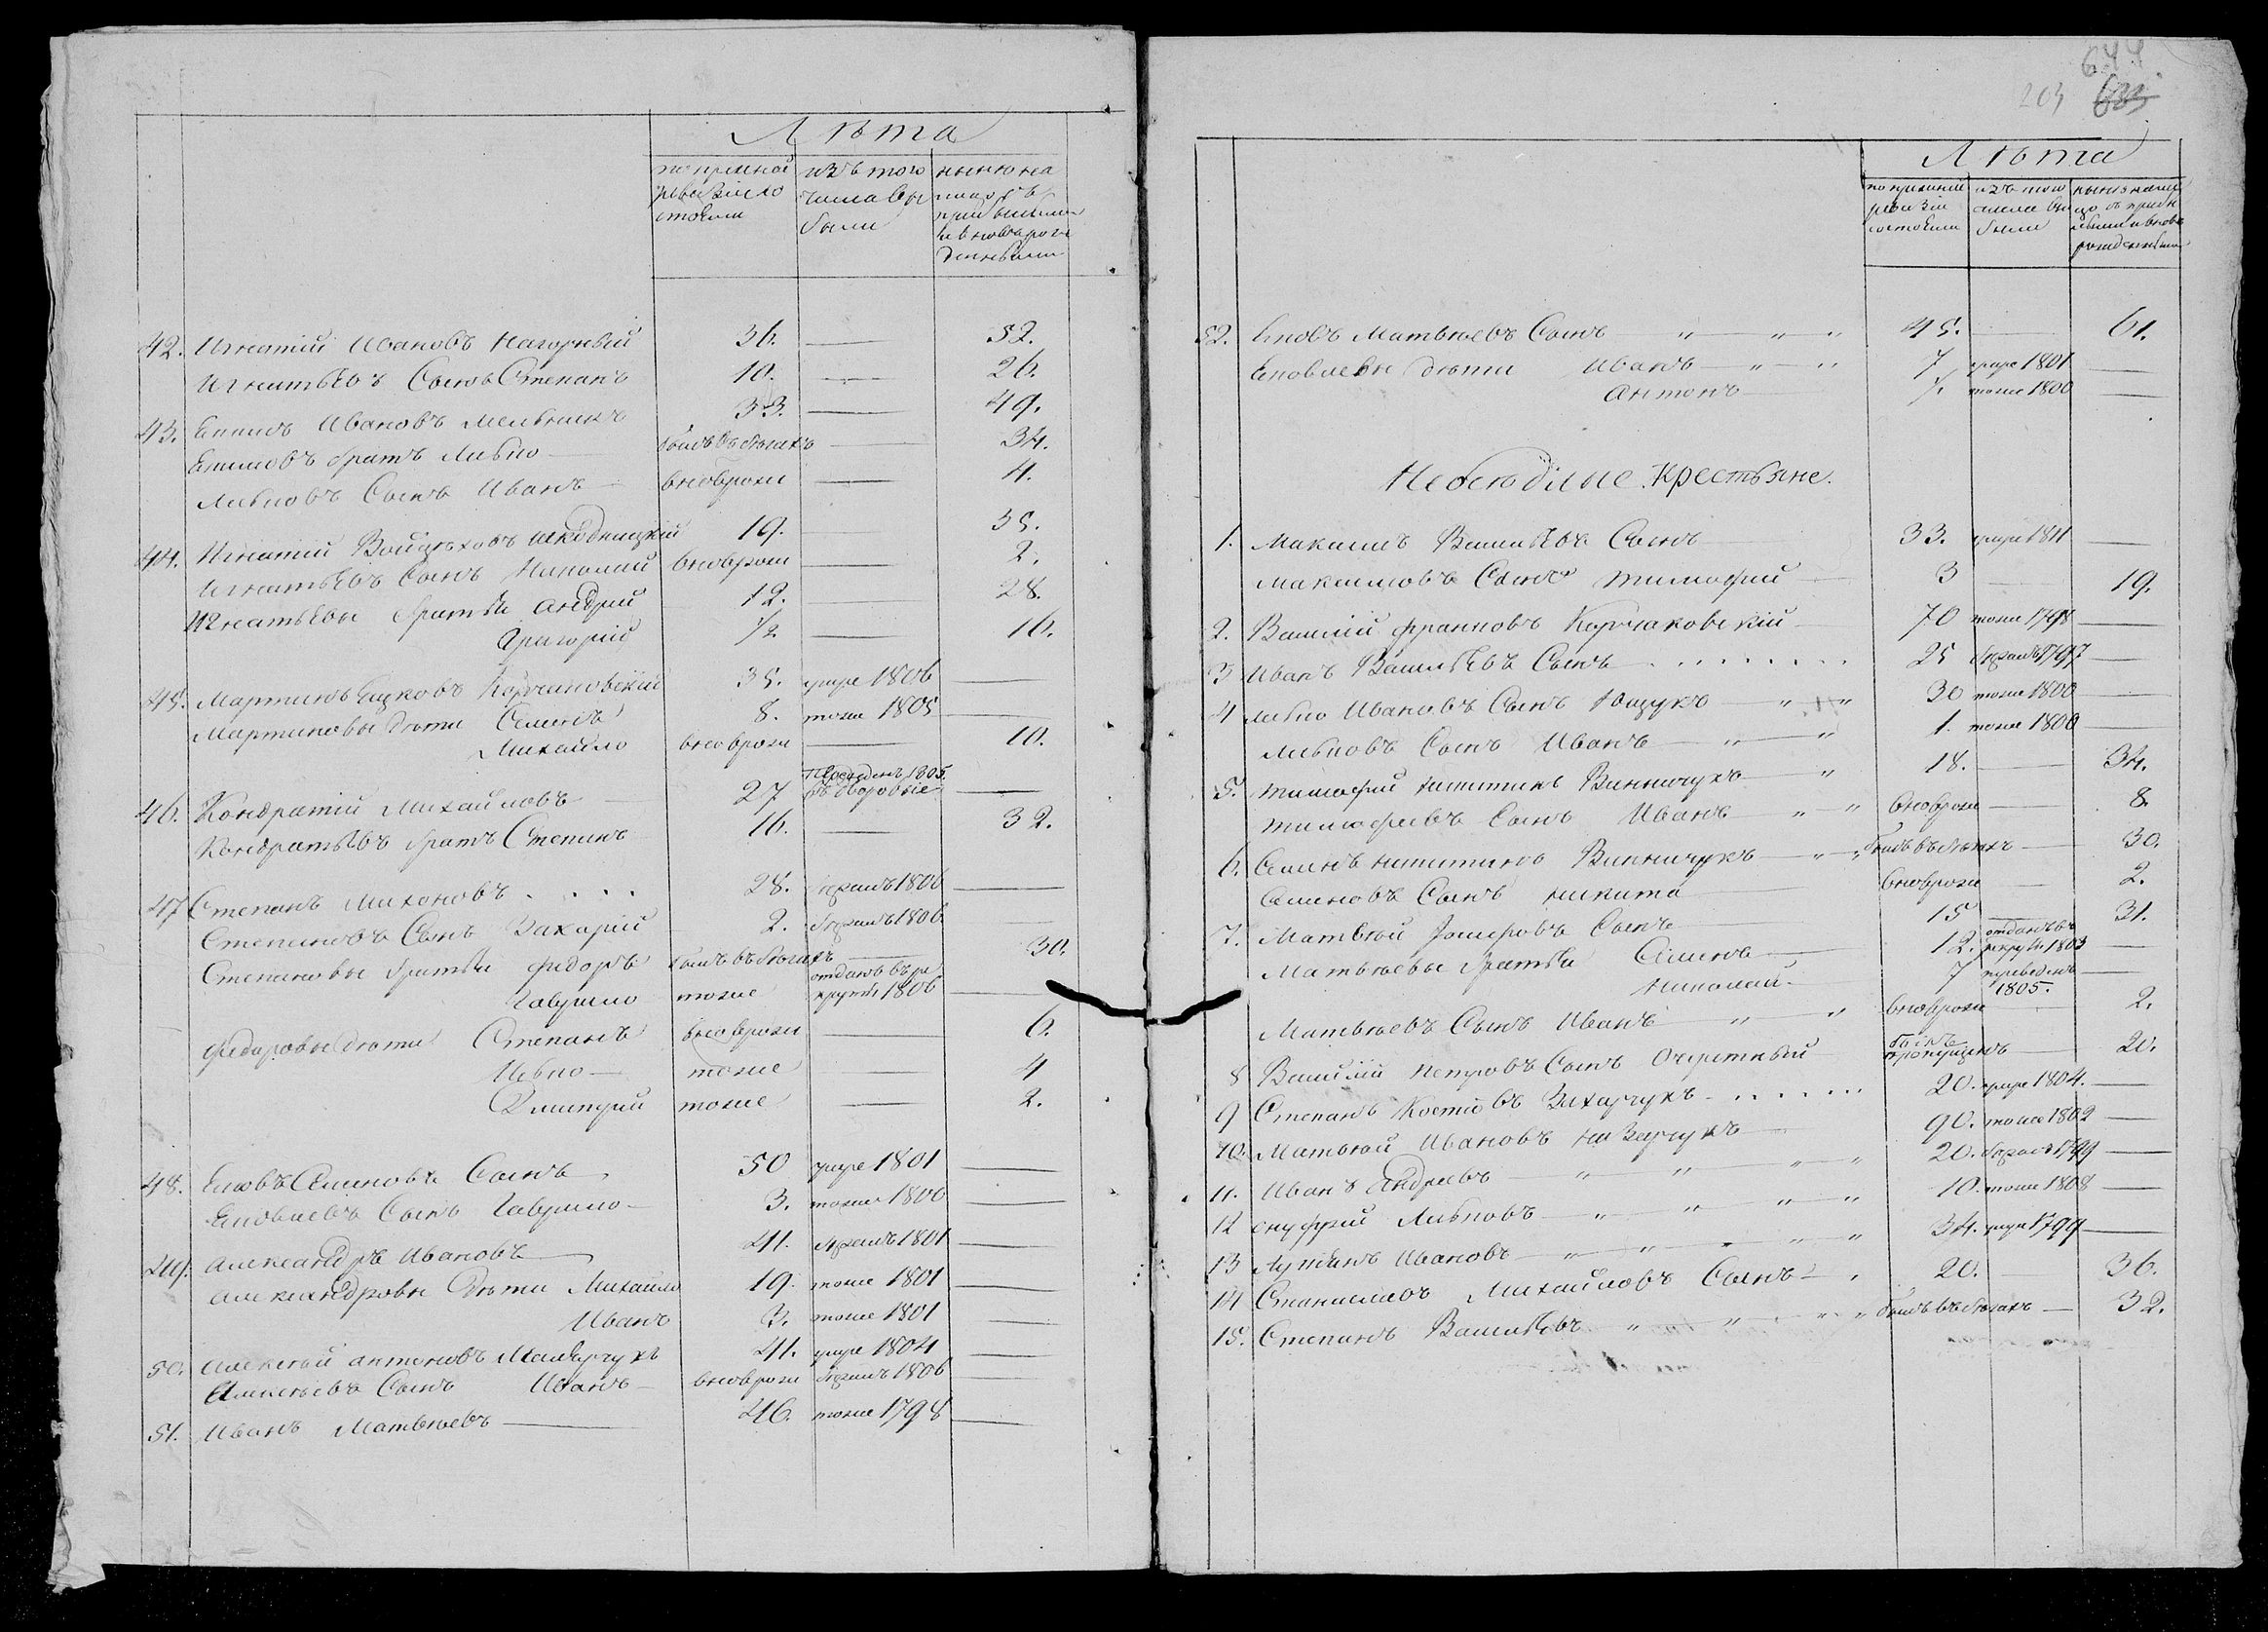 Лѣта
по прежней ревизіи состояли
изъ того числа выбыли
нынѣ на лицо съ прибылыми и вновь рожденными
42. Игнатій Ивановъ Нагорный 36. — 52.
Игнатьевъ Сынъ Степанъ 10. — 26.
43. Ивановъ Мельникъ 33. — 49.
братъ былъ въ бѣгахъ — 34.
Сынъ Иванъ вновьрож — 4.
44. Игнатій Войцѣховъ 19. — 35.
Игнатьевъ Сынъ Николай вновьрож — 2.
Игнатьевы братья Андрій 12. — 28.
Григорій ½ — 16.
45. Мартинъ 35. умре 1806 —
Мартиновы дѣти Семенъ 8. тоже 1805 —
Михайло вновьрож — 10.
46. Кондратій Михайловъ 27 1805. въ дворовые —
Кондратьевъ братъ Степанъ 16. — 32.
47 Степанъ 28. бѣжалъ 1806 —
Степановъ Сынъ Захарій 2. бѣжалъ 1806 —
Степановы братья Федоръ былъ въ бѣгахъ — 30.
Гаврило тоже отданъ въ рекруты 1806 —
Федоровы дѣти Степанъ вновьрож — 6.
тоже — 4
Дмитрій тоже — 2.
48. Семеновъ Сынъ 50 умре 1801 —
Сынъ Гаврило 3. тоже 1800 —
49. Александръ Ивановъ 41. бѣжалъ 1801 —
Александровы дѣти Михайло 19. тоже 1801 —
Иванъ 3. тоже 1801 —
50. Алексѣй Антоновъ 41. умре 1804 —
Алексѣевъ Сынъ Иванъ вновьрож бѣжалъ 1806 —
51. Иванъ Матвѣевъ 46. тоже 1798 —
644
203 633
Лѣта
по прежней ревизіи состояли
изъ того числа выбыли
нынѣ на лицо съ прибылыми и вновь рожденными
52. Матвѣевъ Сынъ 45. — 61.
дѣти Иванъ 7 умре 1801 —
Антонъ тоже 1800 —
Крестьяне.
1. Максимъ Васильевъ Сынъ 33. умре 1811 —
Максимовъ Сынъ Тимофій 3 — 19.
2. Василій 70 тоже 1798 —
3 Иванъ Васильевъ Сынъ 25 бѣжалъ 1797 —
4 Ивановъ Сынъ 30 тоже 1800 —
Сынъ Иванъ 1. тоже 1800 —
5. Тимофій Никитинъ Винничукъ 18. — 34.
Тимофѣевъ Сынъ Иванъ вновьрож — 8.
6. Семенъ Никитинъ Винничукъ былъ въ бѣгахъ — 30.
Семеновъ Сынъ Никита вновьрож — 2.
7. Матвѣй Сынъ 15 — 31.
Матвѣевы братья Семенъ 12. отданъ въ рекруты 1803 —
Николай 7 переведенъ 1805. —
Матвѣевъ Сынъ Иванъ вновьрож — 2.
8 Василій Петровъ Сынъ Очеретный былъ пропущенъ — 20.
9 Степанъ Костювъ Захарчукъ 20. умре 1804. —
10. Матвѣй Ивановъ Назарчукъ 90. тоже 1802 —
11. Иванъ Андреевъ 20. бѣжалъ 1799 —
12 Онуфрій 10. тоже 1808 —
13 Ивановъ 34. умре 1799 —
14 Станиславъ Михайловъ Сынъ 20. — 36.
15. Степанъ Васильевъ былъ въ бѣгахъ — 32.